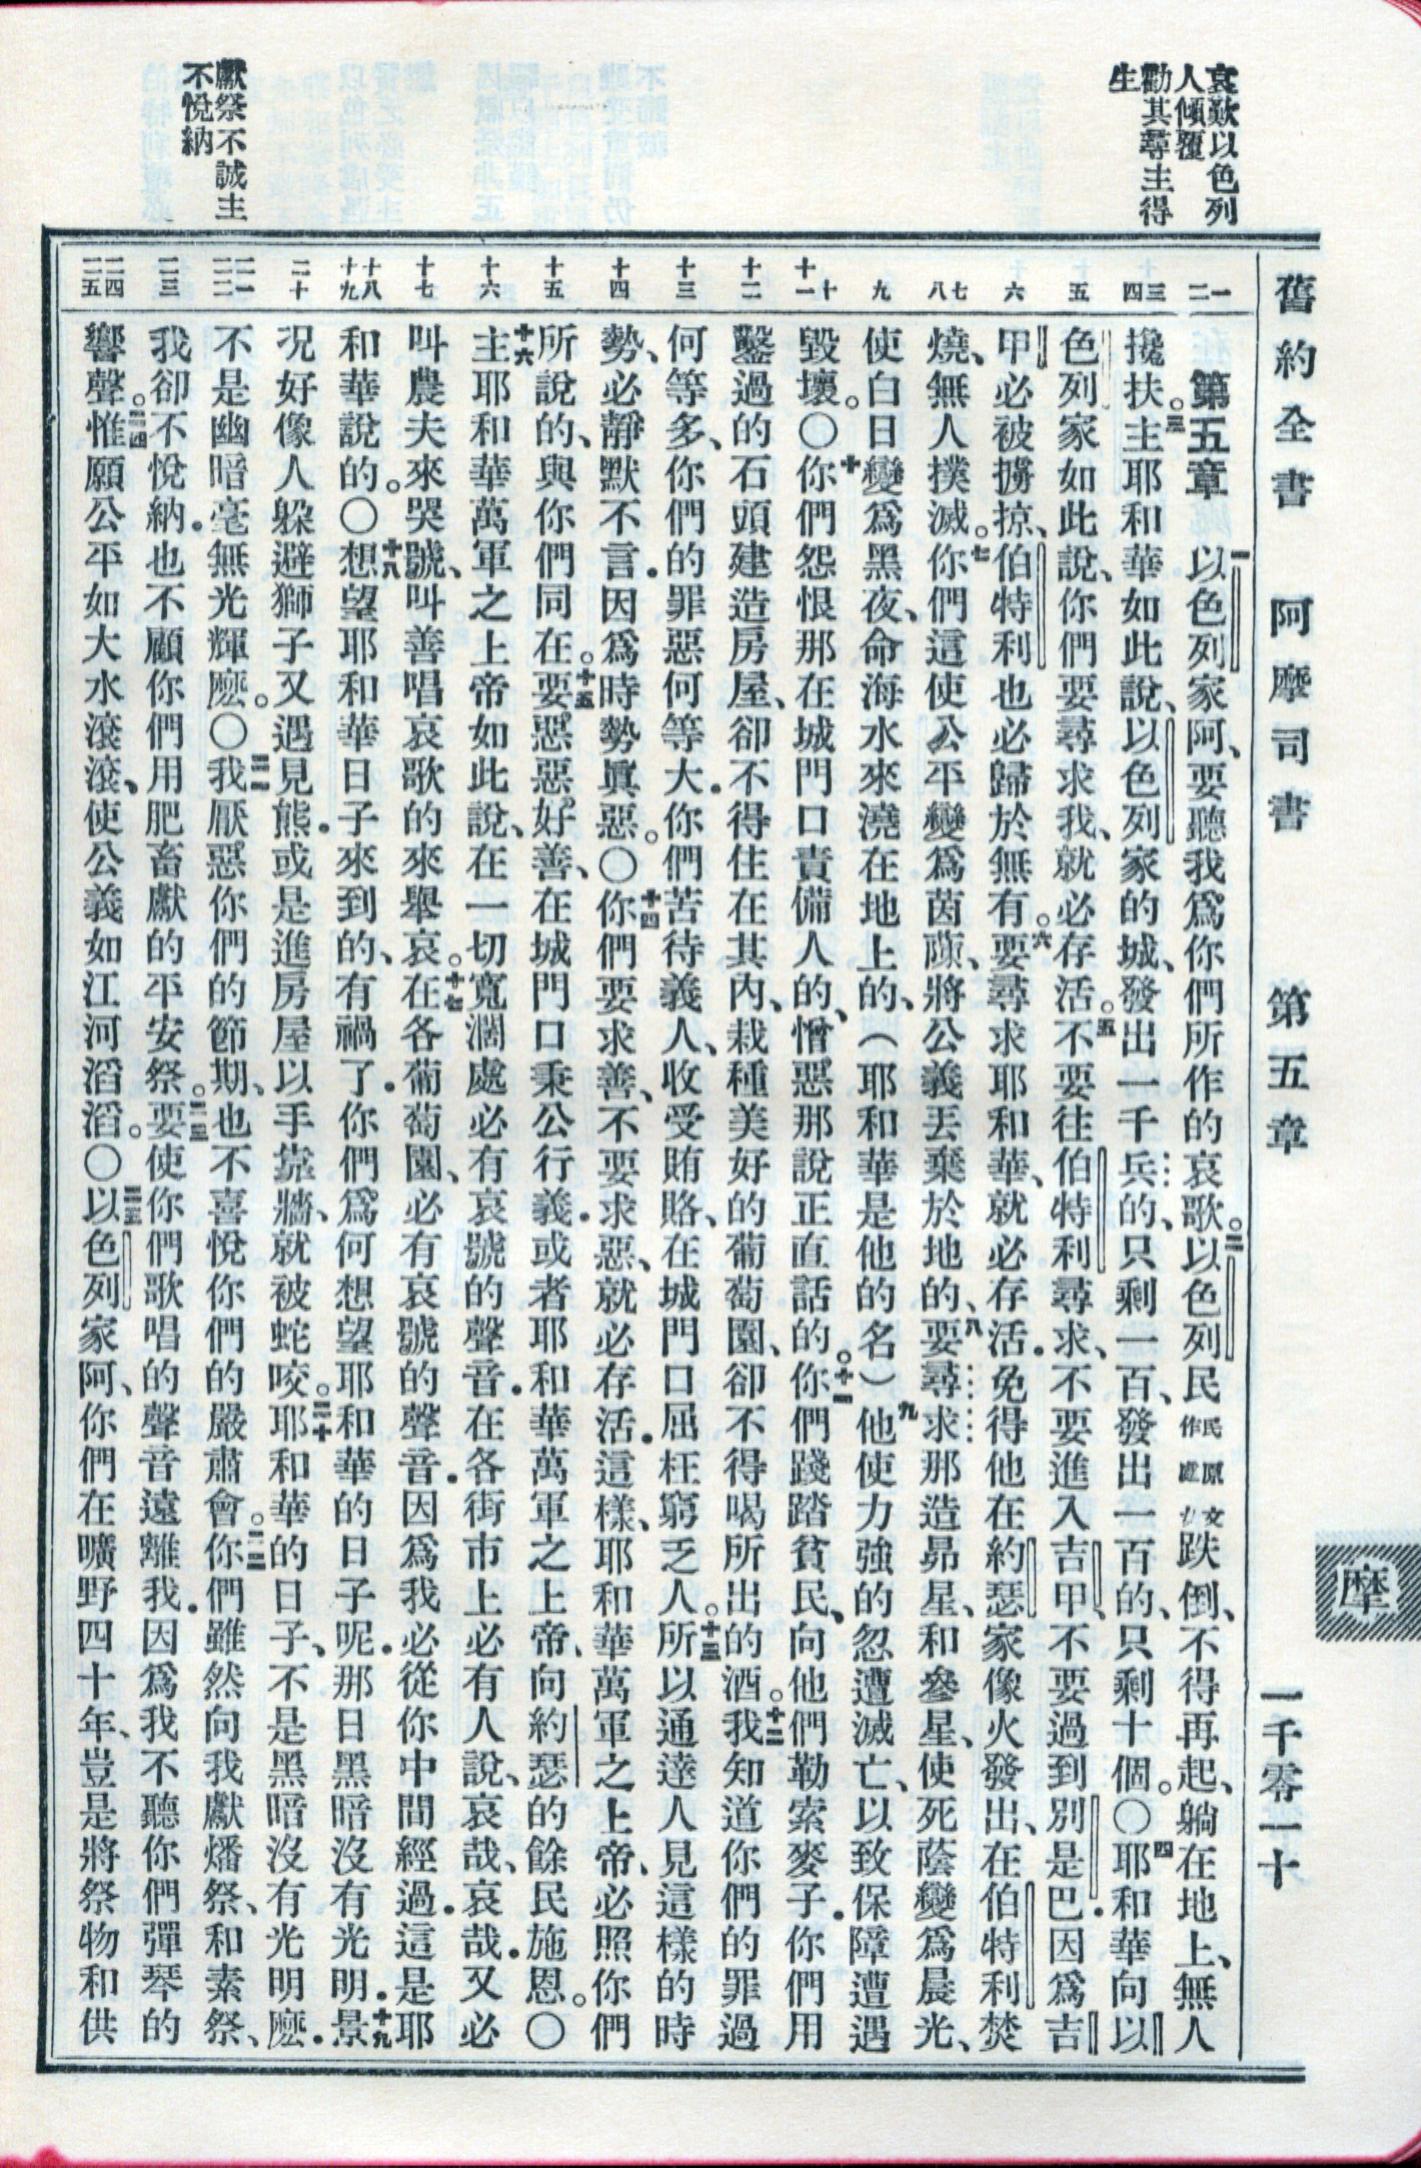 哀歎以色列
人傾覆
勸其尋主得
生
獻祭不誠主
不悅納
舊約全書 阿摩司書 第五章 一千零一十
摩
一 二
三 四
五
六
七 八
九
十 十一
十二
十三
十四
十五
十六
十七
十八 十九
二十
二一 二二
二三
二四 二五
第五章 一以色列家阿、要聽我爲你們所作的哀歌。二以色列民民原文作處女跌倒、不得再起、躺在地上、無人
攙扶。三主耶和華如此說、以色列家的城、發出一千兵的、只剩一百、發出一百的、只剩十個。〇四耶和華向以
色列家如此說、你們要尋求我、就必存活。五不要往伯特利尋求、不要進入吉甲、不要過到別是巴.因爲吉
甲必被擄掠、伯特利也必歸於無有。六要尋求耶和華、就必存活.免得他在約瑟家像火發出、在伯特利焚
燒、無人撲滅。七你們這使公平變爲茵蔯、將公義丟棄於地的、八要尋求那造昴星、和參星、使死蔭變爲晨光、
使白日變爲黑夜、命海水來澆在地上的、（耶和華是他的名）九他使力強的忽遭滅亡、以致保障遭遇
毀壞。〇十你們怨恨那在城門口責備人的、憎惡那說正直話的。十一你們踐踏貧民、向他們勒索麥子.你們用
鑿過的石頭建造房屋、卻不得住在其內、栽種美好的葡萄園、卻不得喝所出的酒。十二我知道你們的罪過
何等多、你們的罪惡何等大.你們苦待義人、收受賄賂、在城門口屈枉窮乏人。十三所以通達人見這樣的時
勢、必靜默不言.因爲時勢眞惡。〇十四你們要求善、不要求惡、就必存活.這樣、耶和華萬軍之上帝、必照你們
所說的、與你們同在。十五要惡惡好善、在城門口秉公行義.或者耶和華萬軍之上帝、向約瑟的餘民施恩。〇
十六主耶和華萬軍之上帝如此說、在一切寬濶處必有哀號的聲音.在各街市上必有人說、哀哉、哀哉.又必
叫農夫來哭號、叫善唱哀歌的來舉哀。十七在各葡萄園、必有哀號的聲音.因爲我必從你中間經過.這是耶
和華說的。〇十八想望耶和華日子來到的、有禍了.你們爲何想望耶和華的日子呢.那日黑暗沒有光明.十九景
况好像人躲避獅子又遇見熊.或是進房屋以手靠牆、就被蛇咬。二十耶和華的日子、不是黑暗沒有光明麽.
不是幽暗毫無光輝麽。〇二一我厭惡你們的節期、也不喜悅你們的嚴肅會。二二你們雖然向我獻燔祭、和素祭、
我卻不悅納.也不顧你們用肥畜獻的平安祭。二三要使你們歌唱的聲音遠離我.因爲我不聽你們彈琴的
響聲。二四惟願公平如大水滾滾、使公義如江河滔滔。〇二五以色列家阿、你們在曠野四十年、豈是將祭物和供